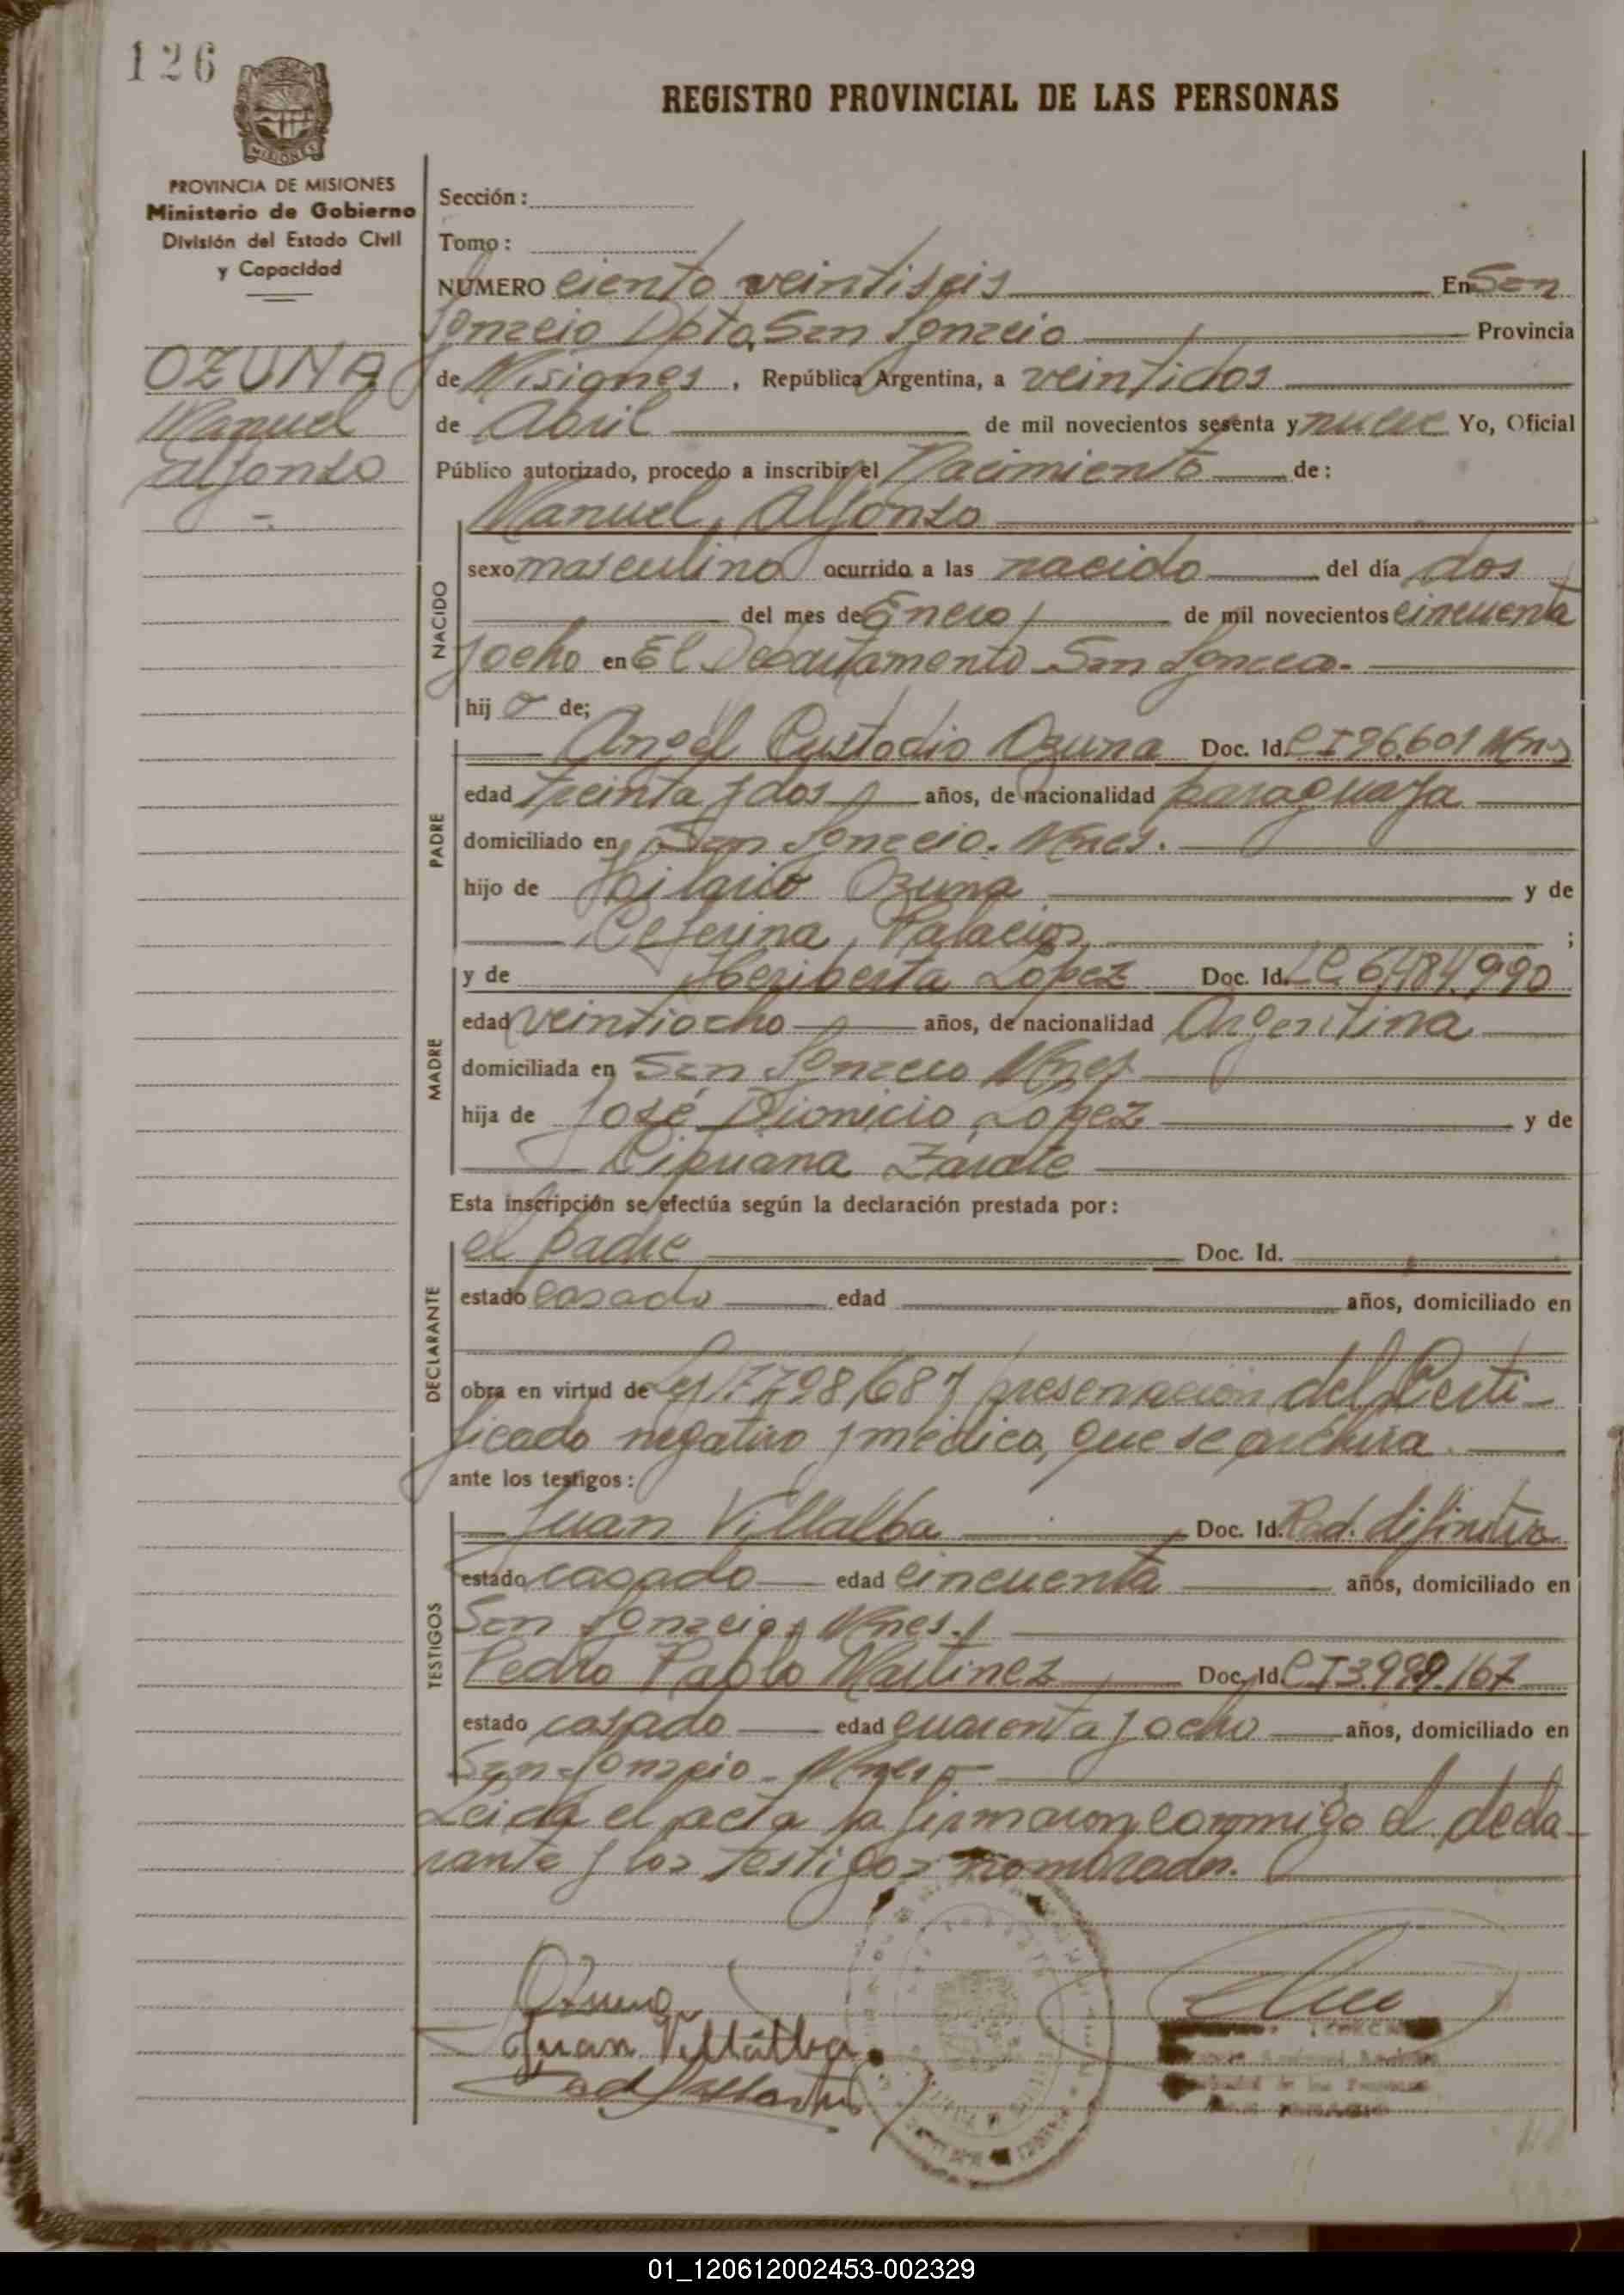 126
REGISTRO PROVINCIAL DE LAS PERSONAS
MISIONES
PROVINCIA DE MISIONES
Ministerio de Gobierno
División del Estado Civil
y Capacidad
OZUNA
Manuel
Alfonso
Sección:
Tomo:
NUMERO ciento veintiseis En San
Ignacio Dpto. San Ignacio Provincia
de Misiones, República Argentina, a veintidos
de Abril de mil novecientos sesenta y nueve Yo, Oficial
Público autorizado, procedo a inscribir el Nacimiento de:
Manuel, Alfonso
NACIDO
sexo masculino ocurrido a las nacido del día dos
del mes de Enero de mil novecientos cincuenta
y ocho en El Departamento San Ignacio.
hijo de;
PADRE
Angel Custodio Ozuna Doc. Id. CI 96.601 Mns
edad treinta y dos años, de nacionalidad paraguaya
domiciliado en San Ignacio. Mnes.
hijo de Hilario Ozuna y de
Ceferina, Palacios ;
MADRE
y de Heriberta Lopez Doc. Id. LC 6.484.990
edad veintiocho años, de nacionalidad Argentina
domiciliada en San Ignacio Mnes
hija de José Dionicio Lopez y de
Cipriana Zarate
Esta inscripción se efectúa según la declaración prestada por:
DECLARANTE
el padre Doc. Id.
estado casado edad años, domiciliado en
obra en virtud de Ley 17798/68 y presentación del Certi-
ficado negativo y médico, que se archiva.
ante los testigos:
TESTIGOS
Juan Villalba Doc. Id. Rad. difinitiva
estado casado edad cincuenta años, domiciliado en
San Ignacio, Mnes.
Pedro Pablo Martinez Doc. Id. CI 3.989.167
estado casado edad cuarenta y ocho años, domiciliado en
San Ignacio - Mnes
Leida el acta la firmaron conmigo el decla-
rante y los testigos nombrados.
Ozuna
Juan Villalba
01_120612002453-002329